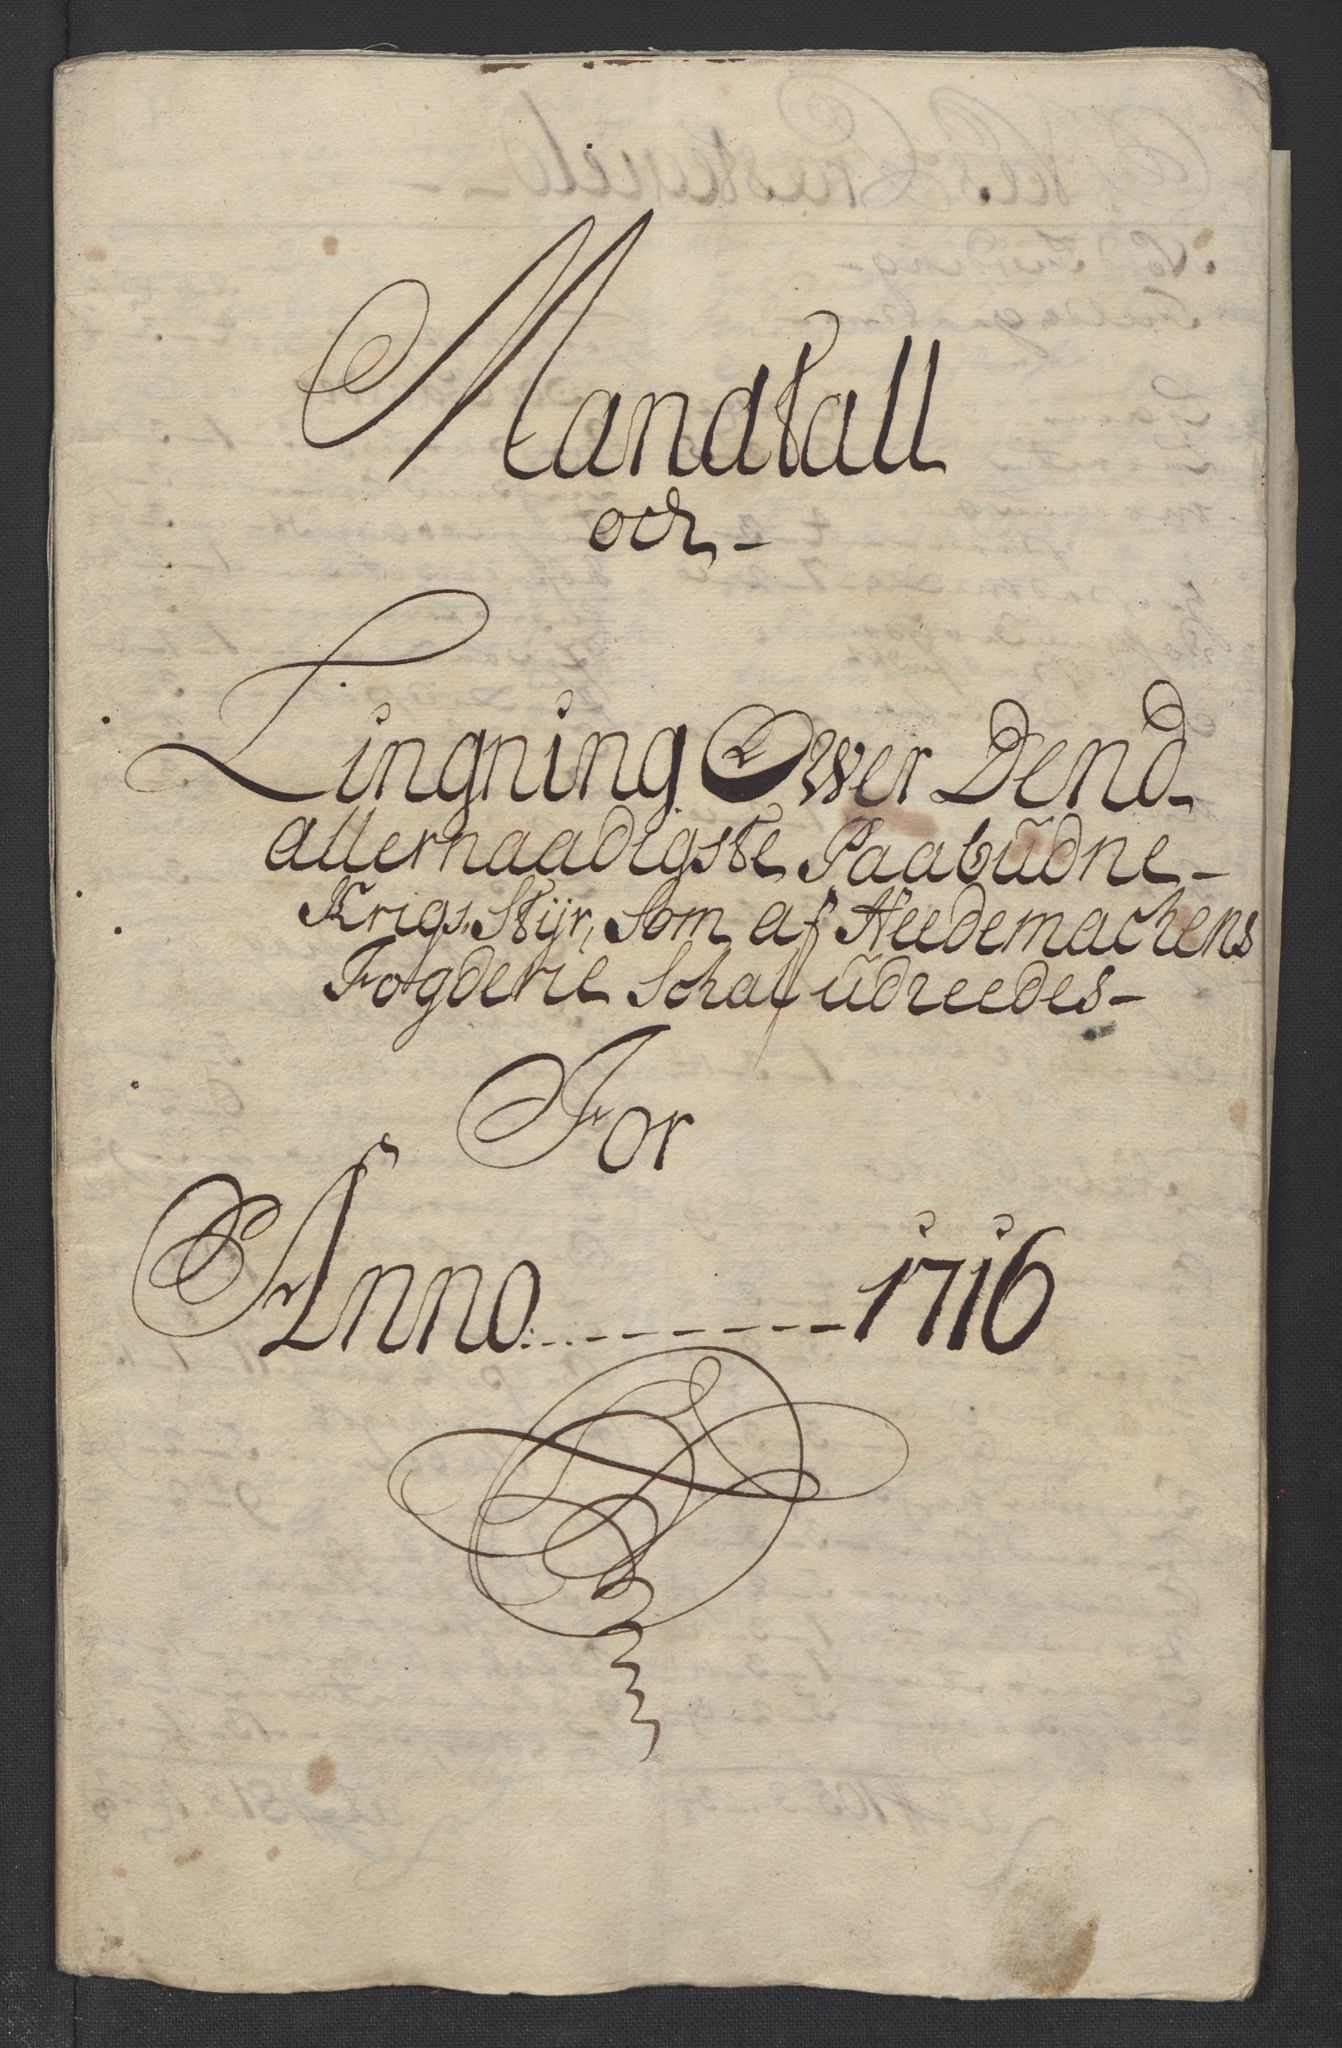 Mandtall
och
Lingning Over Dend
allernaadigste Paabudne
Krigs Styr, Som af Heedemachens
Fogderie Schal üdreedes
For
Anno 1716